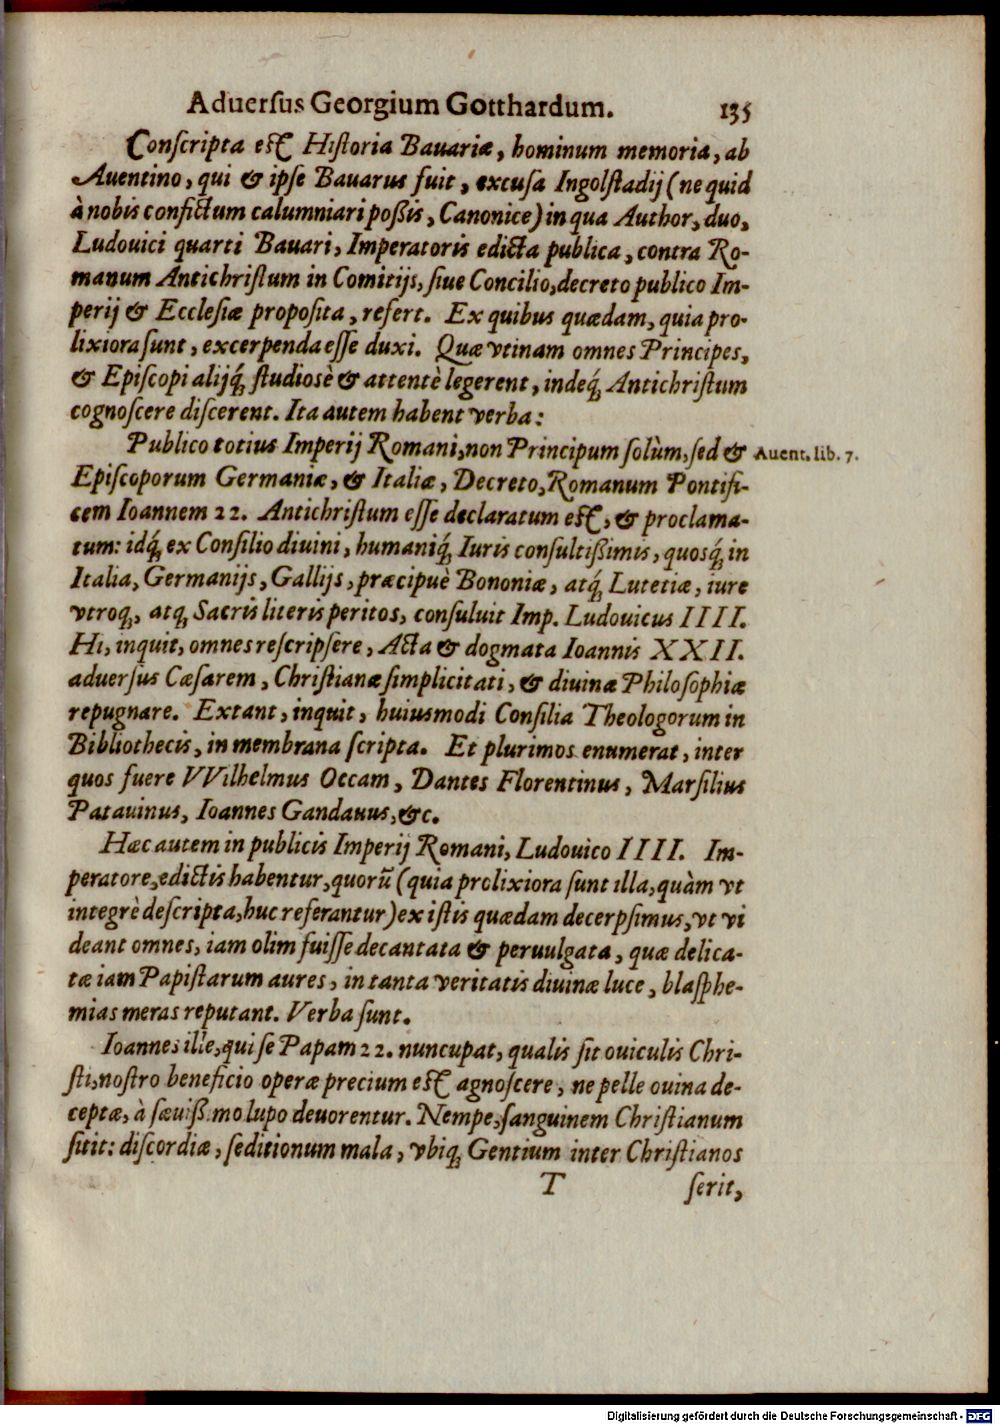 Aduerſus Georgium Gotthardum. 135
Conſcripta eſt Hiſtoria Bauariæ, hominum memoria, ab
Auentino, qui & ipſe Bauarus fuit, excuſa Ingolſtadij (ne quid
à nobis confictum calumniari poßis, Canonice) in qua Author, duo,
Ludouici quarti Bauari, Imperatoris edicta publica, contra Ro-
manum Antichriſtum in Comitijs, ſiue Concilio, decreto publico Im-
perij & Eccleſiæ propoſita, refert. Ex quibus quædam, quia pro-
lixiora ſunt, excerpenda eſſe duxi. Quæ vtinam omnes Principes,
& Epiſcopi alijq́; ſtudiosè & attentè legerent, indeq́; Antichriſtum
cognoſcere diſcerent. Ita autem habent verba:
Publico totius Imperij Romani, non Principum ſolùm, ſed &
Auent. lib. 7.
Epiſcoporum Germaniæ, & Italiæ, Decreto, Romanum Pontifi-
cem Ioannem 22. Antichriſtum eſſe declaratum eſt, & proclama-
tum: idq́; ex Conſilio diuini, humaniq́; Iuris conſultißimis, quosq́; in
Italia, Germanijs, Gallijs, præcipuè Bononiæ, atq́; Lutetiæ, iure
vtroq;, atq; Sacris literis peritos, conſuluit Imp. Ludouicus IIII.
Hi, inquit, omnes reſcripſere, Acta & dogmata Ioannis XXII.
aduerſus Cæſarem, Chriſtianæ ſimplicitati, & diuinæ Philoſophiæ
repugnare. Extant, inquit, huiusmodi Conſilia Theologorum in
Bibliothecis, in membrana ſcripta. Et plurimos enumerat, inter
quos fuere VVilhelmus Occam, Dantes Florentinus, Marſilius
Patauinus, Ioannes Gandauus, &c.
Hæc autem in publicis Imperij Romani, Ludouico IIII. Im-
peratore, edictis habentur, quorũ (quia prolixiora ſunt illa, quàm vt
integrè deſcripta, huc referantur) ex iſtis quædam decerpſimus, vt vi
deant omnes, iam olim fuiſſe decantata & peruulgata, quæ delica-
tæ iam Papiſtarum aures, in tanta veritatis diuinæ luce, blaſphe-
mias meras reputant. Verba ſunt.
Ioannes ille, qui ſe Papam 22. nuncupat, qualis ſit ouiculis Chri-
ſti, noſtro beneficio operæ precium eſt agnoſcere, ne pelle ouina de-
ceptæ, à ſæuiß:mo lupo deuorentur. Nempe, ſanguinem Chriſtianum
ſitit: diſcordiæ, ſeditionum mala, vbiq; Gentium inter Chriſtianos
T ſerit,
Digitalisierung gefördert durch die Deutsche Forschungsgemeinschaft - DFG